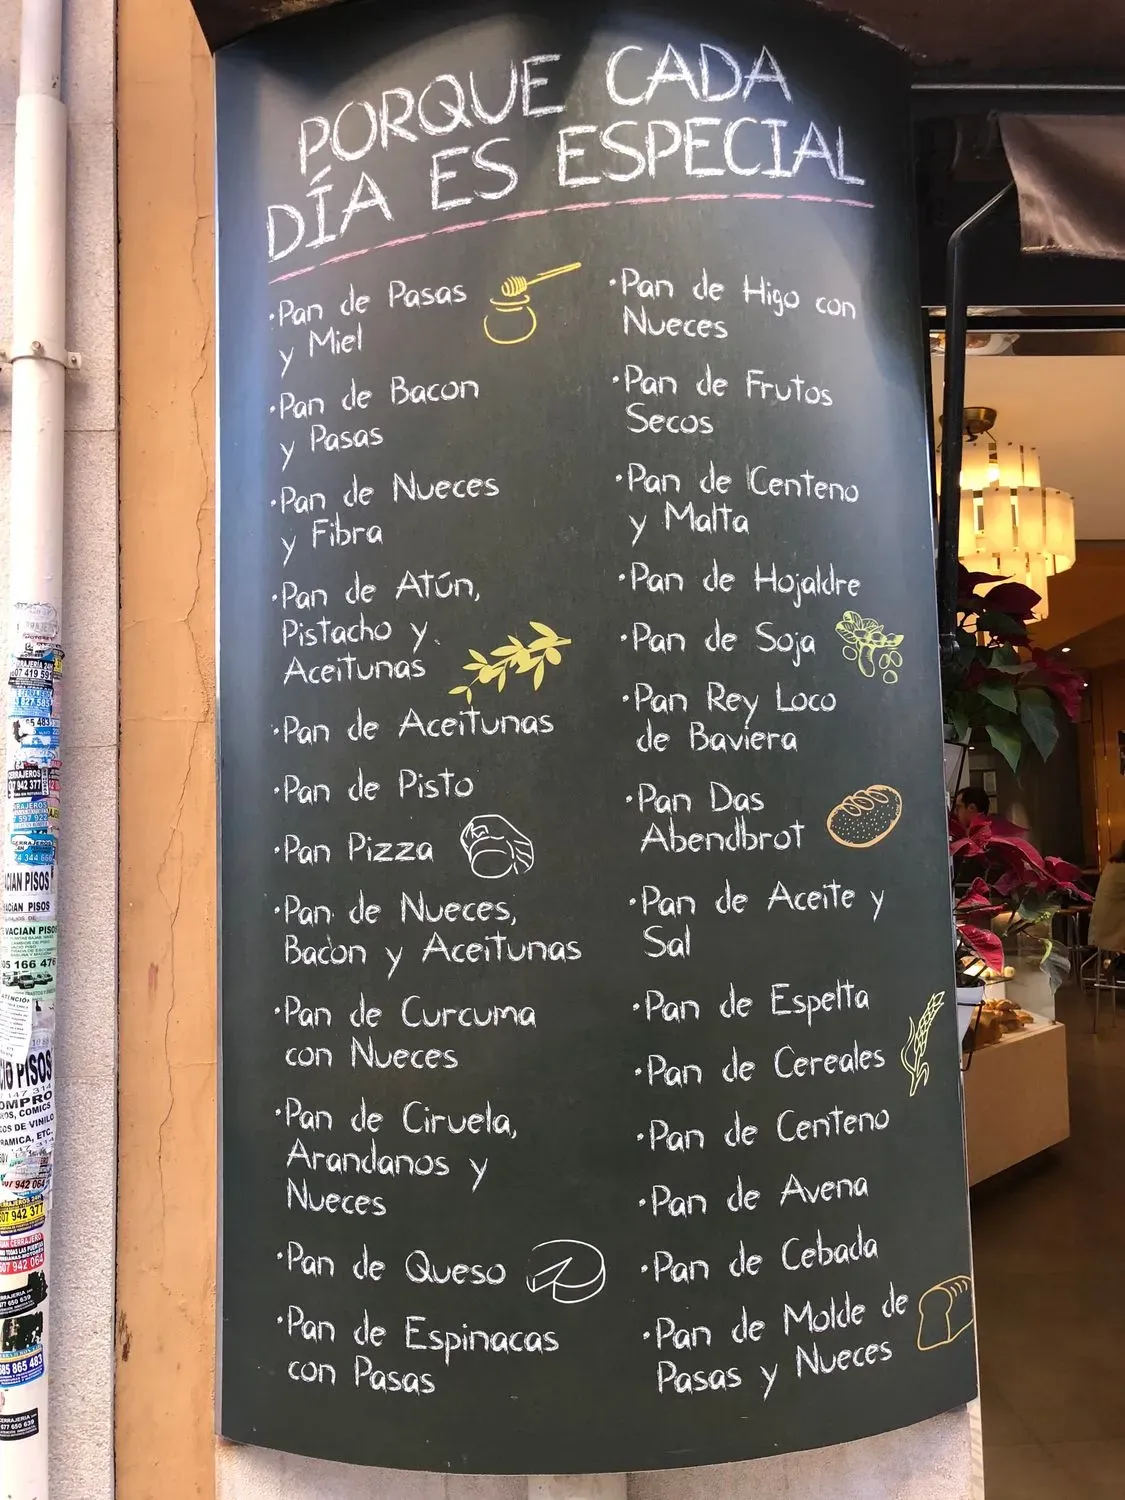 PORQUE CADA
DÍA ES ESPECIAL
·Pan de Pasas
y Miel
·Pan de Bacon
y Pasas
·Pan de Nueces
y Fibra
·Pan de Atún,
Pistacho y
Aceitunas
·Pan de Aceitunas
·Pan de Pisto
·Pan Pizza
·Pan de Nueces,
Bacon y Aceitunas
·Pan de Curcuma
con Nueces
·Pan de Ciruela,
Arandanos y
Nueces
·Pan de Queso
·Pan de Espinacas
con Pasas
·Pan de Higo con
Nueces
·Pan de Frutos
Secos
·Pan de Centeno
y Malta
·Pan de Hojaldre
·Pan de Soja
·Pan Rey Loco
de Baviera
·Pan Das
Abendbrot
·Pan de Aceite y
Sal
·Pan de Espelta
·Pan de Cereales
·Pan de Centeno
·Pan de Avena
·Pan de Cebada
·Pan de Molde de
Pasas y Nueces